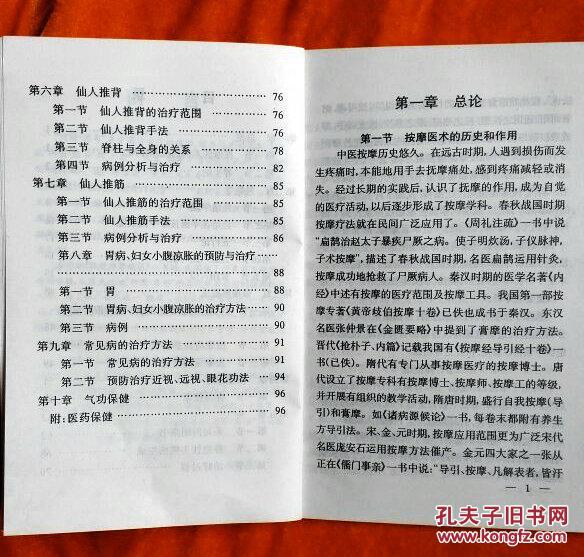 第六章 仙人推背 …………………… 76
第一节 仙人推背的治疗范围 ………… 76
第二节 仙人推背手法 ………………… 76
第三节 脊柱与全身的关系 …………… 78
第四节 病例分析与治疗 ……………… 82
第七章 仙人推筋 …………………… 85
第一节 仙人推筋的治疗范围 ………… 85
第二节 仙人推筋手法 ………………… 85
第三节 病例分析与治疗 ……………… 86
第八章 胃病、妇女小腹凉胀的预防与治疗 ……
…………………………………… 88
第一节 胃 …………………………… 88
第二节 胃病、妇女小腹凉胀的治疗方法 … 90
第三节 病例 ………………………… 90
第九章 常见病的治疗方法 …………… 91
第一节 常见病的治疗方法 …………… 91
第二节 预防治疗近视、远视、眼花功法 … 94
第十章 气功保健 …………………… 96
附:医药保健 ………………………… 96
第一章 总论
第一节 按摩医术的历史和作用
中医按摩历史悠久。在远古时期,人遇到损伤而发
生疼痛时,本能地用手去抚摩痛处,感到疼痛减轻或消
失。经过长期的实践后,认识了抚摩的作用,成为自觉
的医疗活动,以后逐步形成了按摩学科。春秋战国时期
按摩疗法就在民间广泛应用了。《周礼注疏》一书中说
“扁鹊治赵太子暴疾尸厥之病。使子明炊汤,子仪脉神,
子术按摩”,描述了春秋战国时期,名医扁鹊运用针灸、
按摩成功地抢救了尸厥病人。秦汉时期的医学名著《内
经》中述有按摩的医疗范围及按摩工具。我国第一部按
摩专著《黄帝歧伯按摩十卷》已佚也成书于秦汉。东汉
名医张仲景在《金匮要略》中提到了膏摩的治疗方法。
晋代《抢朴子、内篇》记载我国有《按摩经导引经十卷》一
书(已佚)。隋代有专门从事按摩医疗的按摩博士。唐
代设立了按摩专科有按摩博士、按摩师、按摩工的等级,
并开展有组织的教学活动,隋唐时期,盛行自我按摩(导
引)和膏摩。如《诸病源候论》一书,每卷末都附有养生
方导引法。宋、金、元时期,按摩应用范围更为广泛宋代
名医庞安石运用按摩方法催产。金元四大家之一张从
正在《儒门事亲》一书中说:“导引、按摩、凡解表者,皆汗
— 1 —
孔夫子旧书网
www.kongfz.com